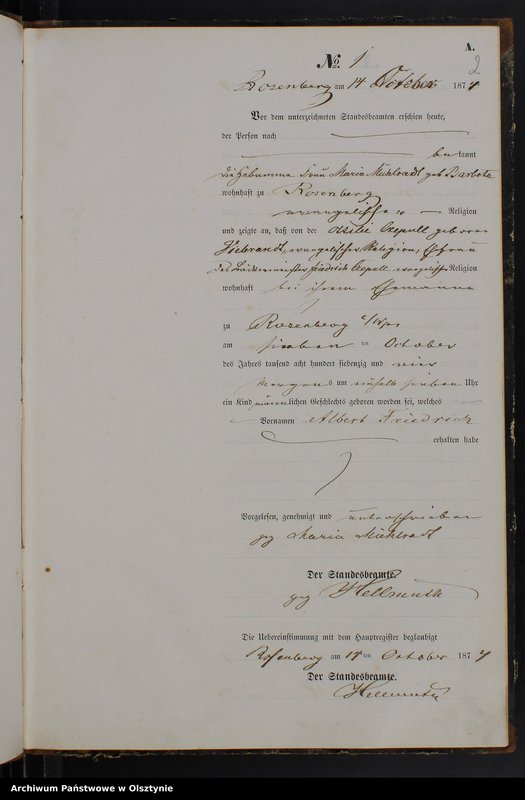 A.
2
No. 1
Rosenberg am 14 October 1874
Vor dem unterzeichneten Standesbeamten erschien heute,
der Person nach
bekannt
die Hebamme Frau Maria Mühlradt geb
wohnhaft zu Rosenberg
evangelischer Religion
und zeigte an, daß von der geborene
evangelischer Religion, Ehefrau
des Friedrich evangelischer Religion
wohnhaft bei ihrem Ehemanne
zu Rosenberg
am sieben ten October
des Jahres tausend acht hundert siebenzig und vier
Morgens um einhalb sieben Uhr
ein Kind männlichen Geschlechts geboren worden sei, welches
Vornamen Albert Friedrich
erhalten habe
Vorgelesen, genehmigt und unterschrieben
gez Maria Mühlradt
Der Standesbeamte.
gez Hellmuth
Die Uebereinstimmung mit dem Hauptregister beglaubigt
Rosenberg am 14 ten October 1874
Der Standesbeamte.
Hellmuth
Archiwum Państwowe w Olsztynie